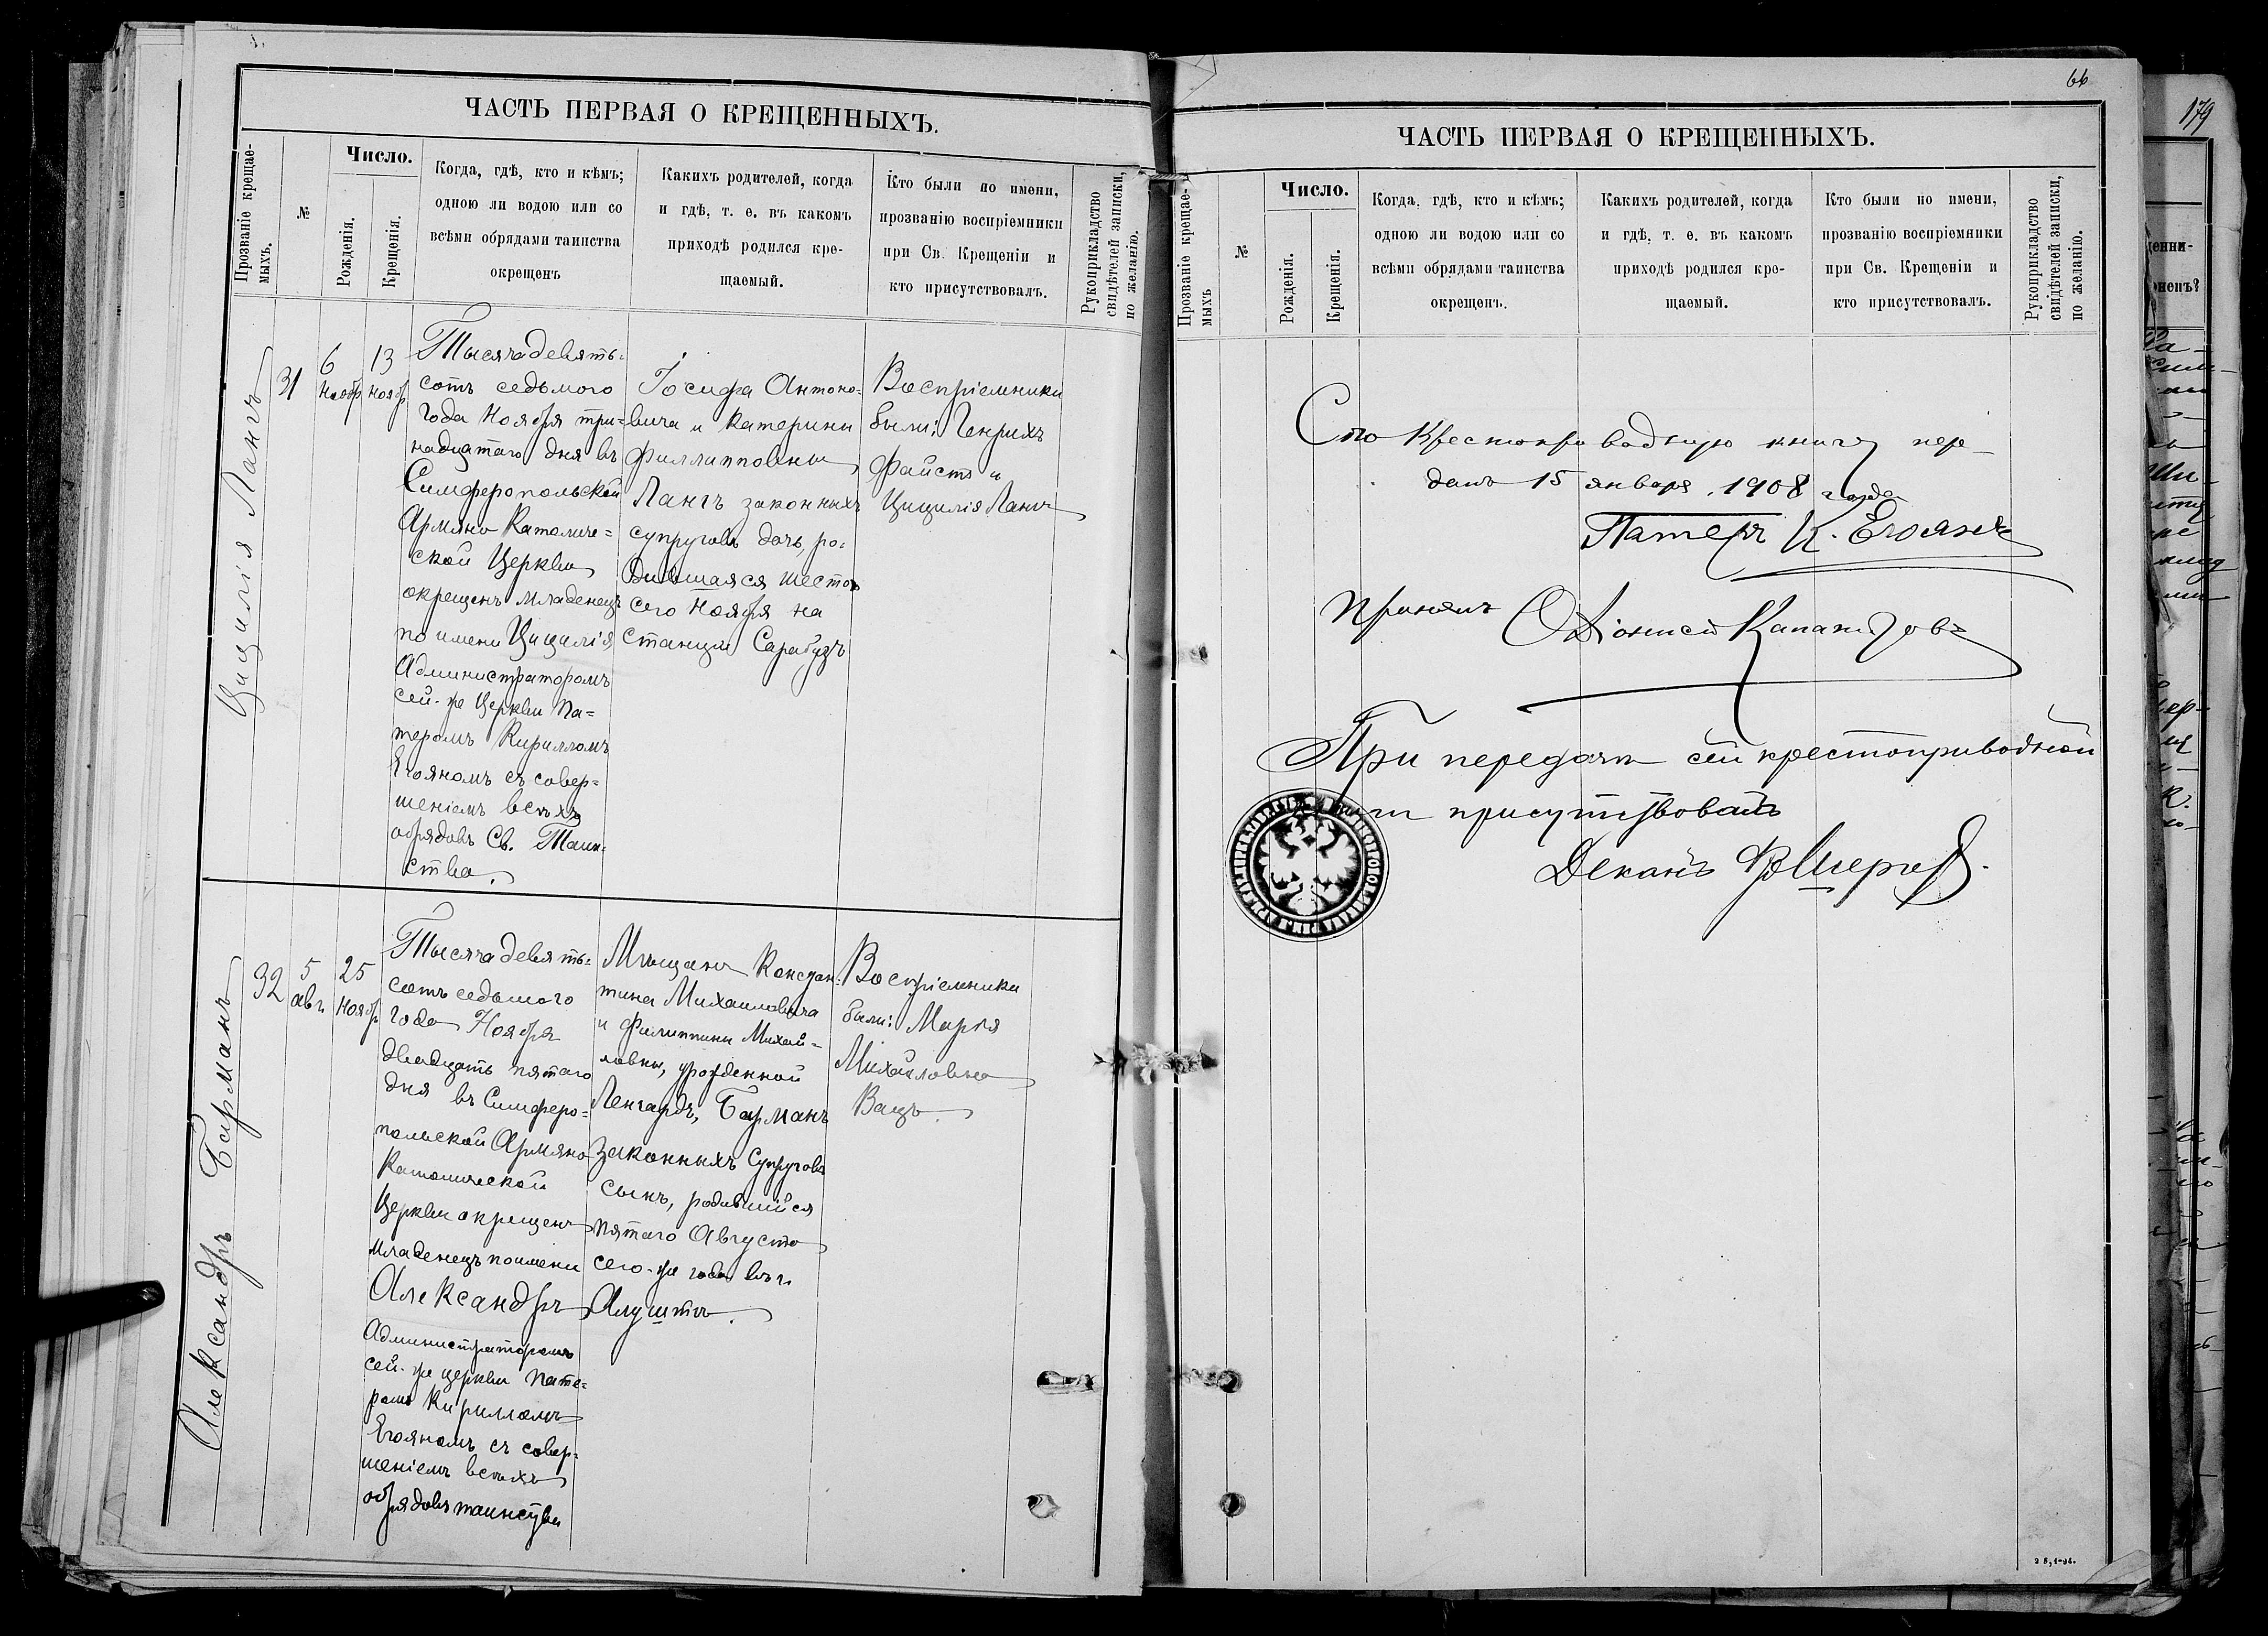 ЧАСТЬ ПЕРВАЯ О КРЕЩЕННЫХЪ.
Прозваніе крещае-
мыхъ.
№
Число.
Рожденія.
Крещенія.
Когда, гдѣ, кто и кѣмъ;
одною ли водою или со
всѣми обрядами таинства
окрещенъ
Какихъ родителей, когда
и гдѣ, т. е. въ какомъ
приходѣ родился кре-
щаемый.
Кто были по имени,
прозванію воспріемники
при Св. Крещеніи и
кто присутствовалъ.
Рукоприкладство
свидѣтелей записки,
по желанію.
Цицилія Лангъ
31
6
Ноябр
13
Ноябр
Тысяча девять-
сотъ седьмого
года Ноября три-
надцатаго дня въ
Симферопольской
Армяно Католиче=
ской Церкви
окрещенъ младенецъ
по имени Цицилія
Администраторомъ
сей-же Церкви Па=
теромъ Кирилломъ
Егояномъ съ совер=
шеніемъ всѣхъ
обрядовъ Св. Таин-
ства.
Іосифа Антоно-
вича и Катерины
Филлипповны
Лангъ законныхъ
супруговъ дочь, ро-
дившаяся шестого
сего Ноября на
Станціи Сарабузъ
Воспріемники
были: Генрихъ
Файстъ и
Цицилія Лангъ
Александръ Бирманъ
32
5
авг.
25
Ноябр
Тысяча девять-
сотъ седьмого
года Ноября
двадцать пятаго
дня въ Симферо=
польской Армяно
Католической
Церкви окрещенъ
младенецъ по имени
Александръ
Администраторомъ
сей-же церкви Пате=
ромъ Кирилломъ
Егояномъ съ совер-
шеніемъ всѣхъ
обрядовъ таинства
Мѣщанъ Констан-
тина Михаиловича
и Филиппины Михай=
ловны, урожденной
Ленгардъ, Бирманъ
законныхъ Супруговъ
сынъ, родившійся
пятаго Августа
сего-же года въ г.
Алуштѣ.
Воспріемники
были: Марія
Михайловна
Вацъ.
66
ЧАСТЬ ПЕРВАЯ О КРЕЩЕННЫХЪ.
Прозваніе крещае-
мыхъ
№
Число.
Рожденія.
Крещенія.
Когда, гдѣ, кто и кѣмъ;
одною ли водою или со
всѣми обрядами таинства
окрещенъ.
Какихъ родителей, когда
и гдѣ, т. е. въ какомъ
приходѣ родился кре-
щаемый.
Кто были по имени,
прозванію воспріемники
при Св. Крещеніи и
кто присутствовалъ.
Рукоприкладство
свидѣтелей записки,
по желанію.
Сію Крестоприводную книгу пере-
далъ 15 января 1908 года
Патеръ К. Егоянъ
Принялъ Діонисій
При передачи сей крестоприводной
присутствовалъ
Деканъ
2 5, 1-04.
179